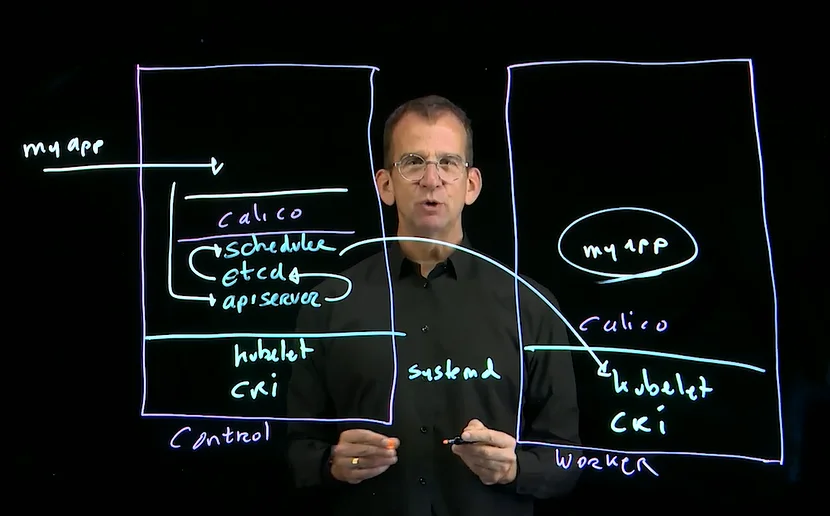 my app
calico
scheduler
etcd
apiserver
kubelet
CRI
Control
systemd
my app
calico
kubelet
CRI
WORKER